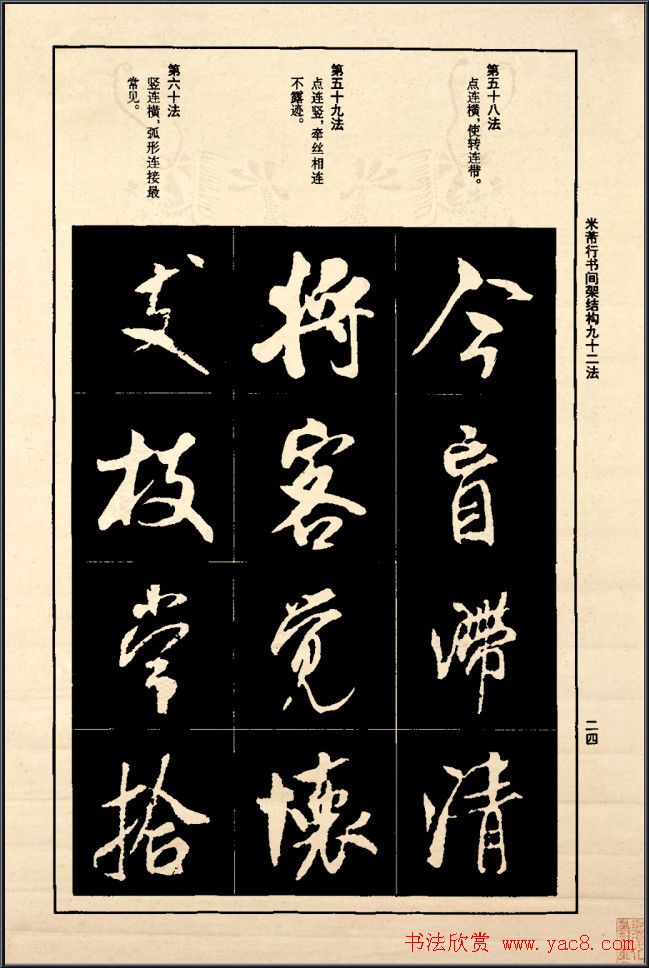 米芾行书间架结构九十二法
二四
第五十八法
点连横，使转连带。
第五十九法
点连竖，牵丝相连
不露迹。
第六十法
竖连横，弧形连接最
常见。
今盲滯清
将客觉懷
支枝常拾
书法欣赏 www.yac8.com